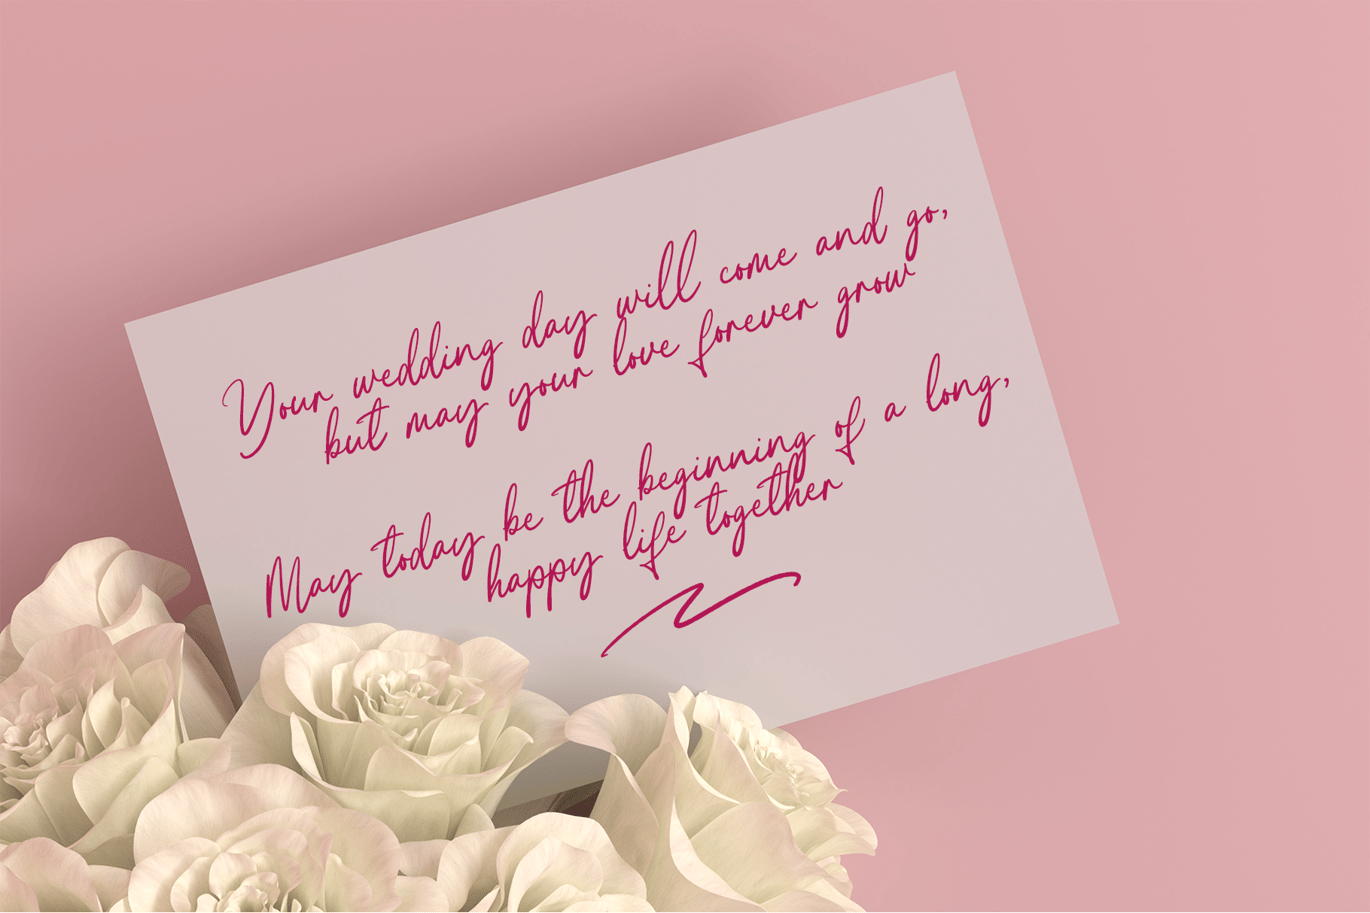 Your wedding day will come and go,
but may your love forever grow
May today be the beginning of a long,
happy life together